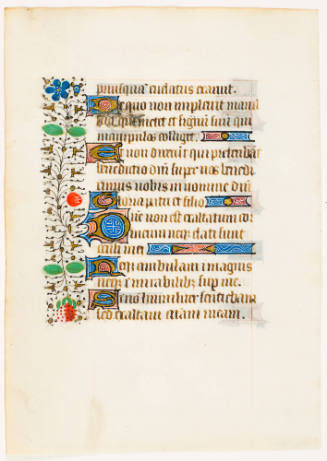 priusquā euelatur exaruit.
De quo non impleuit manū
suā qui metet et sinū suū qui
manipulos colliget
Et non dixerūt qui preteribāt
benedictio dñi super uos benedi
ximus uobis in nomine dñi
Gloria patri et filio
Dñe non est exaltatum cor
meum neq; elati sunt
oculi mei
Neq; ambulaui in magnis
neq; in mirabilibus sup me.
Si nō humiliter sentiebam
sed exaltaui aīam meam.